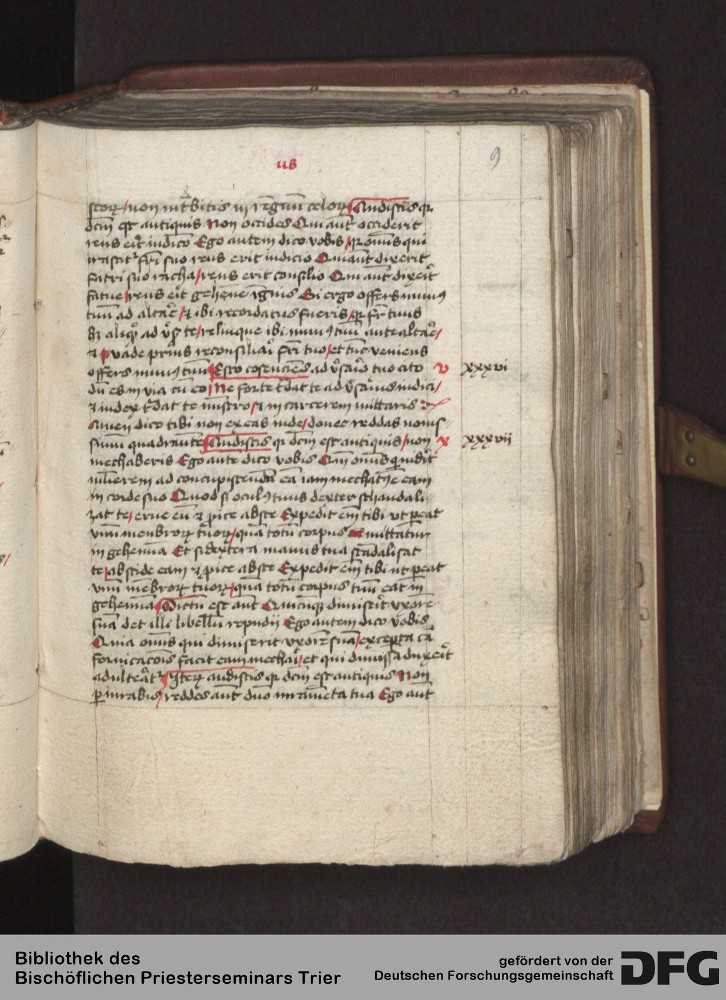 us
9
non intrabitis in regnum celorum Audistis quia
dictum est antiquis Non occides Qui autem occiderit
reus erit iudicio Ego autem dico vobis quia omnis qui
irascitur fratri suo reus erit iudicio Qui autem dixerit
fratri suo racha reus erit consilio Qui autem dixerit
fatue reus erit gehenne ignis Si ergo offers munus
tuum ad altare et ibi recordatus fueris quia frater tuus
aliquid ad te relinque ibi munus tuum ante altare
et vade prius reconsiliari fratri tuo et tunc veniens
offers munus tuum Esto cosenciens ad tuo cito xxxvi
dum es in via cum eo Ne forte tradat te iudici
et iudex tradat te ministro et in carcerem mittaris
Amen dico tibi non exeas inde donec reddas novis
simum quadrante Audistis quia dictum est antiquis non xxxvii
mechaberis Ego autem dico vobis Quia omnis qui viderit
mulierem ad concupiscendam eam iam mechatus eam
in corde suo Quod si oculus tuus dexter schandali
zat te erue eum et proice abs te Expedit enim tibi ut pereat
unum membrorum tuorum quam totum corpus mittatur
in gehenna Et si dextera manus tua scandalisat
te abscide eam et proice abs te Expedit enim tibi ut pereat
unum membrorum tuorum quam totum corpus tuum eat in
gehenna Dictum est autem Quicunque dimiserit uxorem
suam det illi libellum repudii Ego autem dico vobis
Quia omnis qui dimiserit uxorem suam excepta causa
fornicacionis facit eam mechari et qui dimissam duxerit
adulterat Iterum audistis quia dictum est antiquis Non
periurabis reddes autem domino iuramenta tua Ego autem
Bibliothek des
Bischöflichen Priesterseminars Trier
gefördert von der
Deutschen Forschungsgemeinschaft
DFG